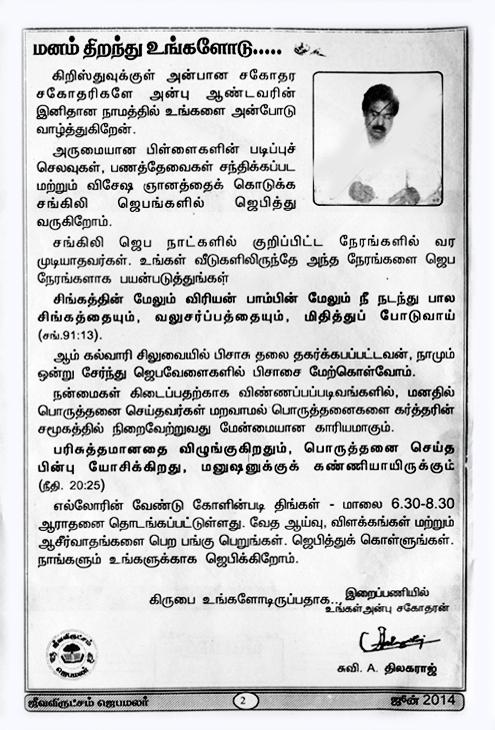 மனம் திறந்து உங்களோடு.....
கிறிஸ்துவுக்குள் அன்பான சகோதர
சகோதரிகளே அன்பு ஆண்டவரின்
இனிதான நாமத்தில் உங்களை அன்போடு
வாழ்த்துகிறேன்.
அருமையான பிள்ளைகளின் படிப்புச்
செலவுகள், பணத்தேவைகள் சந்திக்கப்பட
மற்றும் விசேஷ ஞானத்தைக் கொடுக்க
சங்கிலி ஜெபங்களில் ஜெபித்து
வருகிறோம்.
சங்கிலி ஜெப நாட்களில் குறிப்பிட்ட நேரங்களில் வர
முடியாதவர்கள். உங்கள் வீடுகளிலிருந்தே அந்த நேரங்களை ஜெப
நேரங்களாக பயன்படுத்துங்கள்
சிங்கத்தின் மேலும் விரியன் பாம்பின் மேலும் நீ நடந்து பால
சிங்கத்தையும், வலுசர்ப்பத்தையும், மிதித்துப் போடுவாய்
(சங்.91:13).
ஆம் கல்வாரி சிலுவையில் பிசாசு தலை தகர்க்கபப்பட்டவன், நாமும்
ஒன்று சேர்ந்து ஜெபவேளைகளில் பிசாசை மேற்கொள்வோம்.
நன்மைகள் கிடைப்பதற்காக விண்ணப்பப்படிவங்களில், மனதில்
பொருத்தனை செய்தவர்கள் மறவாமல் பொருத்தனைகளை கர்த்தரின்
சமூகத்தில் நிறைவேற்றுவது மேன்மையான காரியமாகும்.
பரிசுத்தமானதை விழுங்குகிறதும், பொருத்தனை செய்த
பின்பு யோசிக்கிறது, மனுஷனுக்குக் கண்ணியாயிருக்கும்
(நீதி. 20:25)
எல்லோரின் வேண்டு கோளின்படி திங்கள் - மாலை 6.30-8.30
ஆராதனை தொடங்கப்பட்டுள்ளது. வேத ஆய்வு, விளக்கங்கள் மற்றும்
ஆசீர்வாதங்களை பெற பங்கு பெறுங்கள். ஜெபித்துக் கொள்ளுங்கள்.
நாங்களும் உங்களுக்காக ஜெபிக்கிறோம்.
கிருபை உங்களோடிருப்பதாக... இறைப்பணியில்
உங்கள் அன்பு சகோதரன்
ஜீவவிருட்சம்
ஜெபமலர்
சுவி. A. திலகராஜ்
ஜீவவிருட்சம் ஜெபமலர் 2 ஜூன் 2014